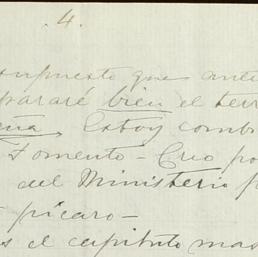 .4.
supuesto que ante
pararé bien el terr
Estoy comb
Fomento - Creo po
del Ministerio p
pícaro -
el capítulo mas